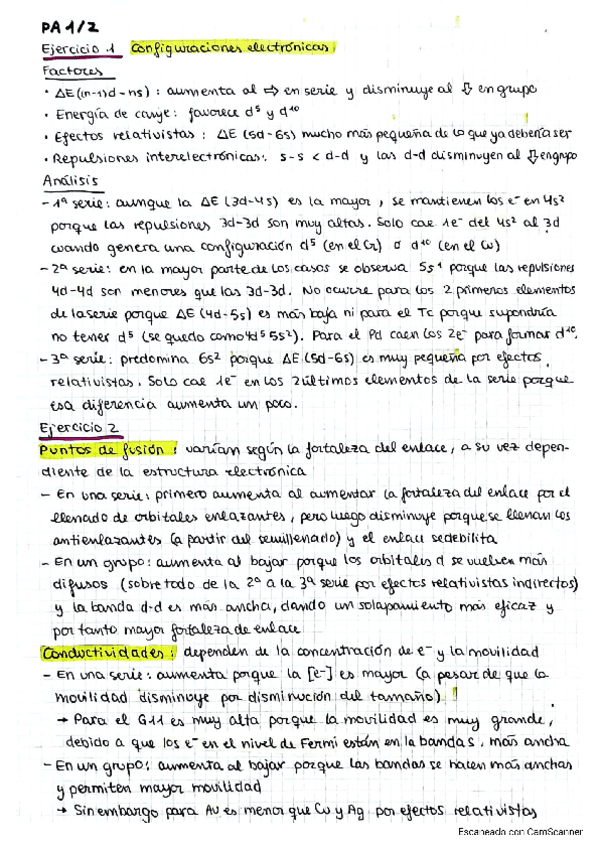 PA 1/2
Ejercicio 1 Configuraciones electrónicas
Factores
· ΔE((n-1)d-ns) : aumenta al ⇨ en serie y disminuye al ⇩ en grupo
· Energía de canje: favorece d⁵ y d¹⁰
· Efectos relativistas : ΔE (5d-6s) mucho más pequeña de lo que ya debería ser
· Repulsiones interelectrónicas: s-s < d-d y las d-d disminuyen al ⇩ engrupo
Análisis
- 1ª serie: aunque la ΔE (3d-4s) es la mayor, se mantienen los e⁻ en 4s²
porque las repulsiones 3d-3d son muy altas. Solo cae 1e⁻ del 4s² al 3d
cuando genera una configuración d⁵ (en el Cr) o d¹⁰ (en el Cu)
- 2ª serie: en la mayor parte de los casos se observa 5s¹ porque las repulsiones
4d-4d son menores que las 3d-3d. No ocurre para los 2 primeros elementos
de la serie porque ΔE (4d-5s) es más baja ni para el Tc porque supondría
no tener d⁵ (se queda como 4d⁵5s²). Para el Pd caen los 2e⁻ para formar d¹⁰.
- 3ª serie: predomina 6s² porque ΔE (5d-6s) es muy pequeña por efectos
relativistas. Solo cae 1e⁻ en los 2 últimos elementos de la serie porque
esa diferencia aumenta un poco.
Ejercicio 2
Puntos de fusión : varían según la fortaleza del enlace, a su vez depen-
diente de la estructura electrónica
- En una serie: primero aumenta al aumentar la fortaleza del enlace por el
llenado de orbitales enlazantes, pero luego disminuye porque se llenan los
antienlazantes (a partir del semillenado) y el enlace se debilita
- En un grupo: aumenta al bajar porque los orbitales d se vuelven más
difusos (sobre todo de la 2ª a la 3ª serie por efectos relativistas indirectos)
y la banda d-d es más ancha, dando un solapamiento más eficaz y
por tanto mayor fortaleza de enlace
Conductividades : dependen de la concentración de e⁻ y la movilidad
- En una serie: aumenta porque la [e⁻] es mayor (a pesar de que la
movilidad disminuye por disminución del tamaño) !
→ Para el G11 es muy alta porque la movilidad es muy grande,
debido a que los e⁻ en el nivel de Fermi están en la banda s, más ancha
- En un grupo: aumenta al bajar porque las bandas se hacen más anchas
y permiten mayor movilidad
→ Sin embargo para Au es menor que Cu y Ag por efectos relativistas
Escaneado con CamScanner